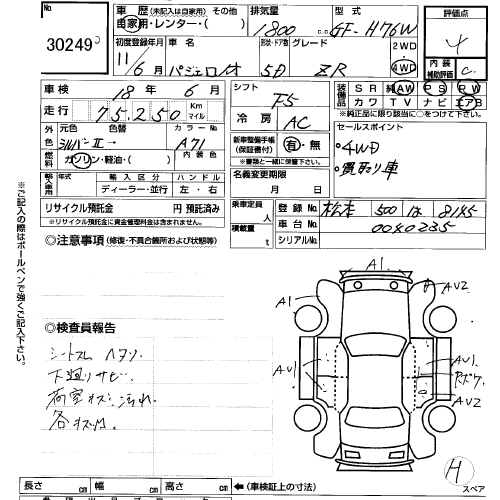 No. 30249
車歴 (未記入は自家用) その他
自家用・レンタカー・( )
排気量 1800 c.c.
型式 GF-H76W
評価点 4
初度登録年月 11/6月
車名 パジェロイオ
形状・ドア数 5D
グレード ZR
2WD
4WD
内装補助評価 C
車検 18年 6月
走行 75,250 Km マイル
シフト F5
冷房 AC
装備品 SR 純AW PS PW
カワ TV ナビ エアB
*純正品に限り該当に○をつけて下さい。
外色 元色 色替 カラーNo.
シルバーII→ A71
燃料 ガソリン・軽油・( )
内装色
新車整備手帳 (保証書付) 有・無
*書類と一緒に保管して下さい。
セールスポイント
・4WD
・買取り車
輸入車用 年式 輸入区分 ハンドル
ディーラー・並行 左・右
名義変更期限 月 日
リサイクル預託金 円 預託済み
*リサイクル預託金に資金管理料金は含まず。
乗車定員 人
積載量 t
登録No. 松本 500 は 8185
車台No. 0040235
シリアルNo.
◎注意事項 (修復・不具合箇所および状態等)
※ご記入の際はボールペンで強くご記入下さい。
A1
A1
AU2
AU1
AU1
AU2
◎検査員報告
下廻りサビ
荷室キズ 汚れ
各キズ凹
H
スペア
長さ cm 幅 cm 高さ cm ←(車検証上の寸法)